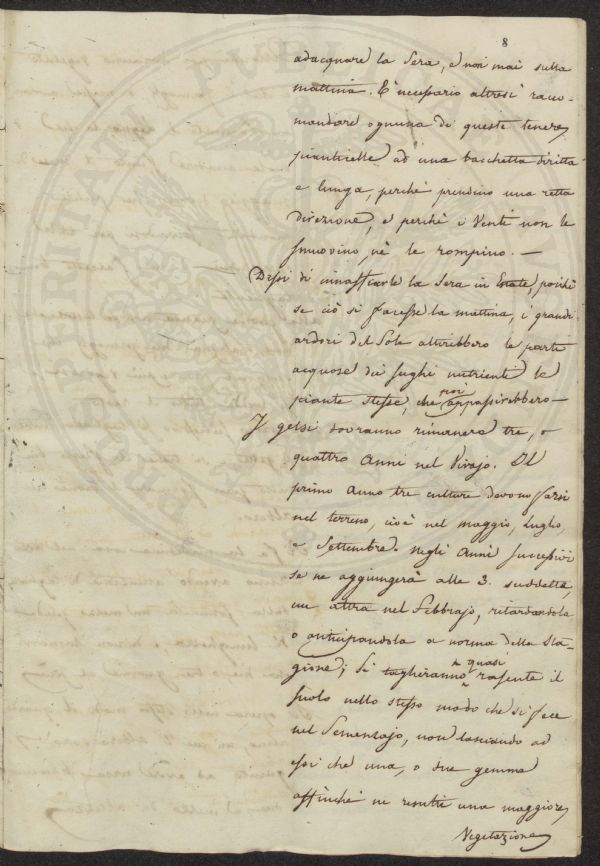 8
adacquare la Sera, e non mai sulla
mattina. È necessario altresì racco-
mandare ognuna di queste tenere
pianticelle ad una bacchetta diritta
e lunga, perchè prendino una retta
direzione, e perchè i Venti non le
smuovino, nè le rompino. —
Dissi di innaffiarle la Sera in Estate, poichè
se ciò si facesse la mattina, i grandi
ardori del Sole attirebbero le parti
acquose dei sughi nutrienti le
piante stesse, che poi appassirebbero —
I gelsi dovranno rimanere tre, o
quattro Anni nel Vivajo. Il
primo Anno tre culture devono farsi
nel terreno, cioè nel maggio, Luglio,
e Settembre. Negli Anni successivi
se ne aggiungerà alle 3. suddette,
un altra nel Febbrajo, ritardandola
o anticipandola a norma della sta-
gione; Si taglieranno quasi rasente il
suolo nello stesso modo che si fece
nel Semenzajo, non lasciando ad
essi che una, o due gemme
affinchè ne resulti una maggiore
Vegetazione
PRO VERITATI